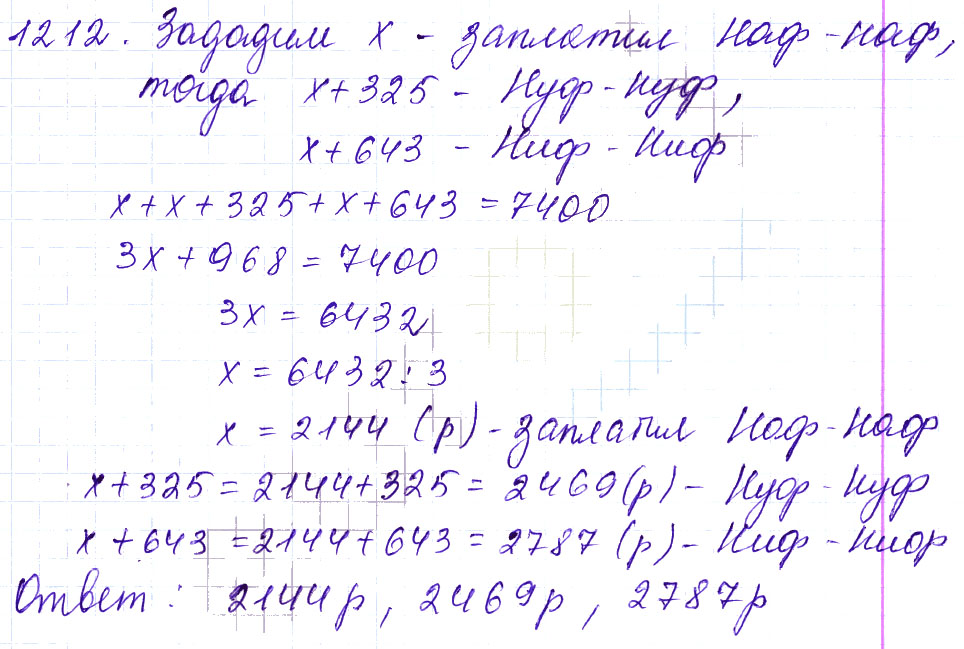 1212. Зададим x - заплатил Наф-Наф,
тогда x+325 - Нуф-Нуф,
x+643 - Ниф-Ниф
x+x+325+x+643=7400
3x+968=7400
3x=6432
x=6432:3
x=2144 (р)-заплатил Наф-Наф
x+325=2144+325=2469(р)-Нуф-Нуф
x+643=2144+643=2787(р)-Ниф-Ниф
Ответ: 2144р, 2469р, 2787р